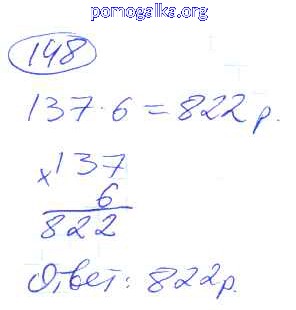 pomogalka.org
148
137·6=822р.
×137
6
822
Ответ: 822р.